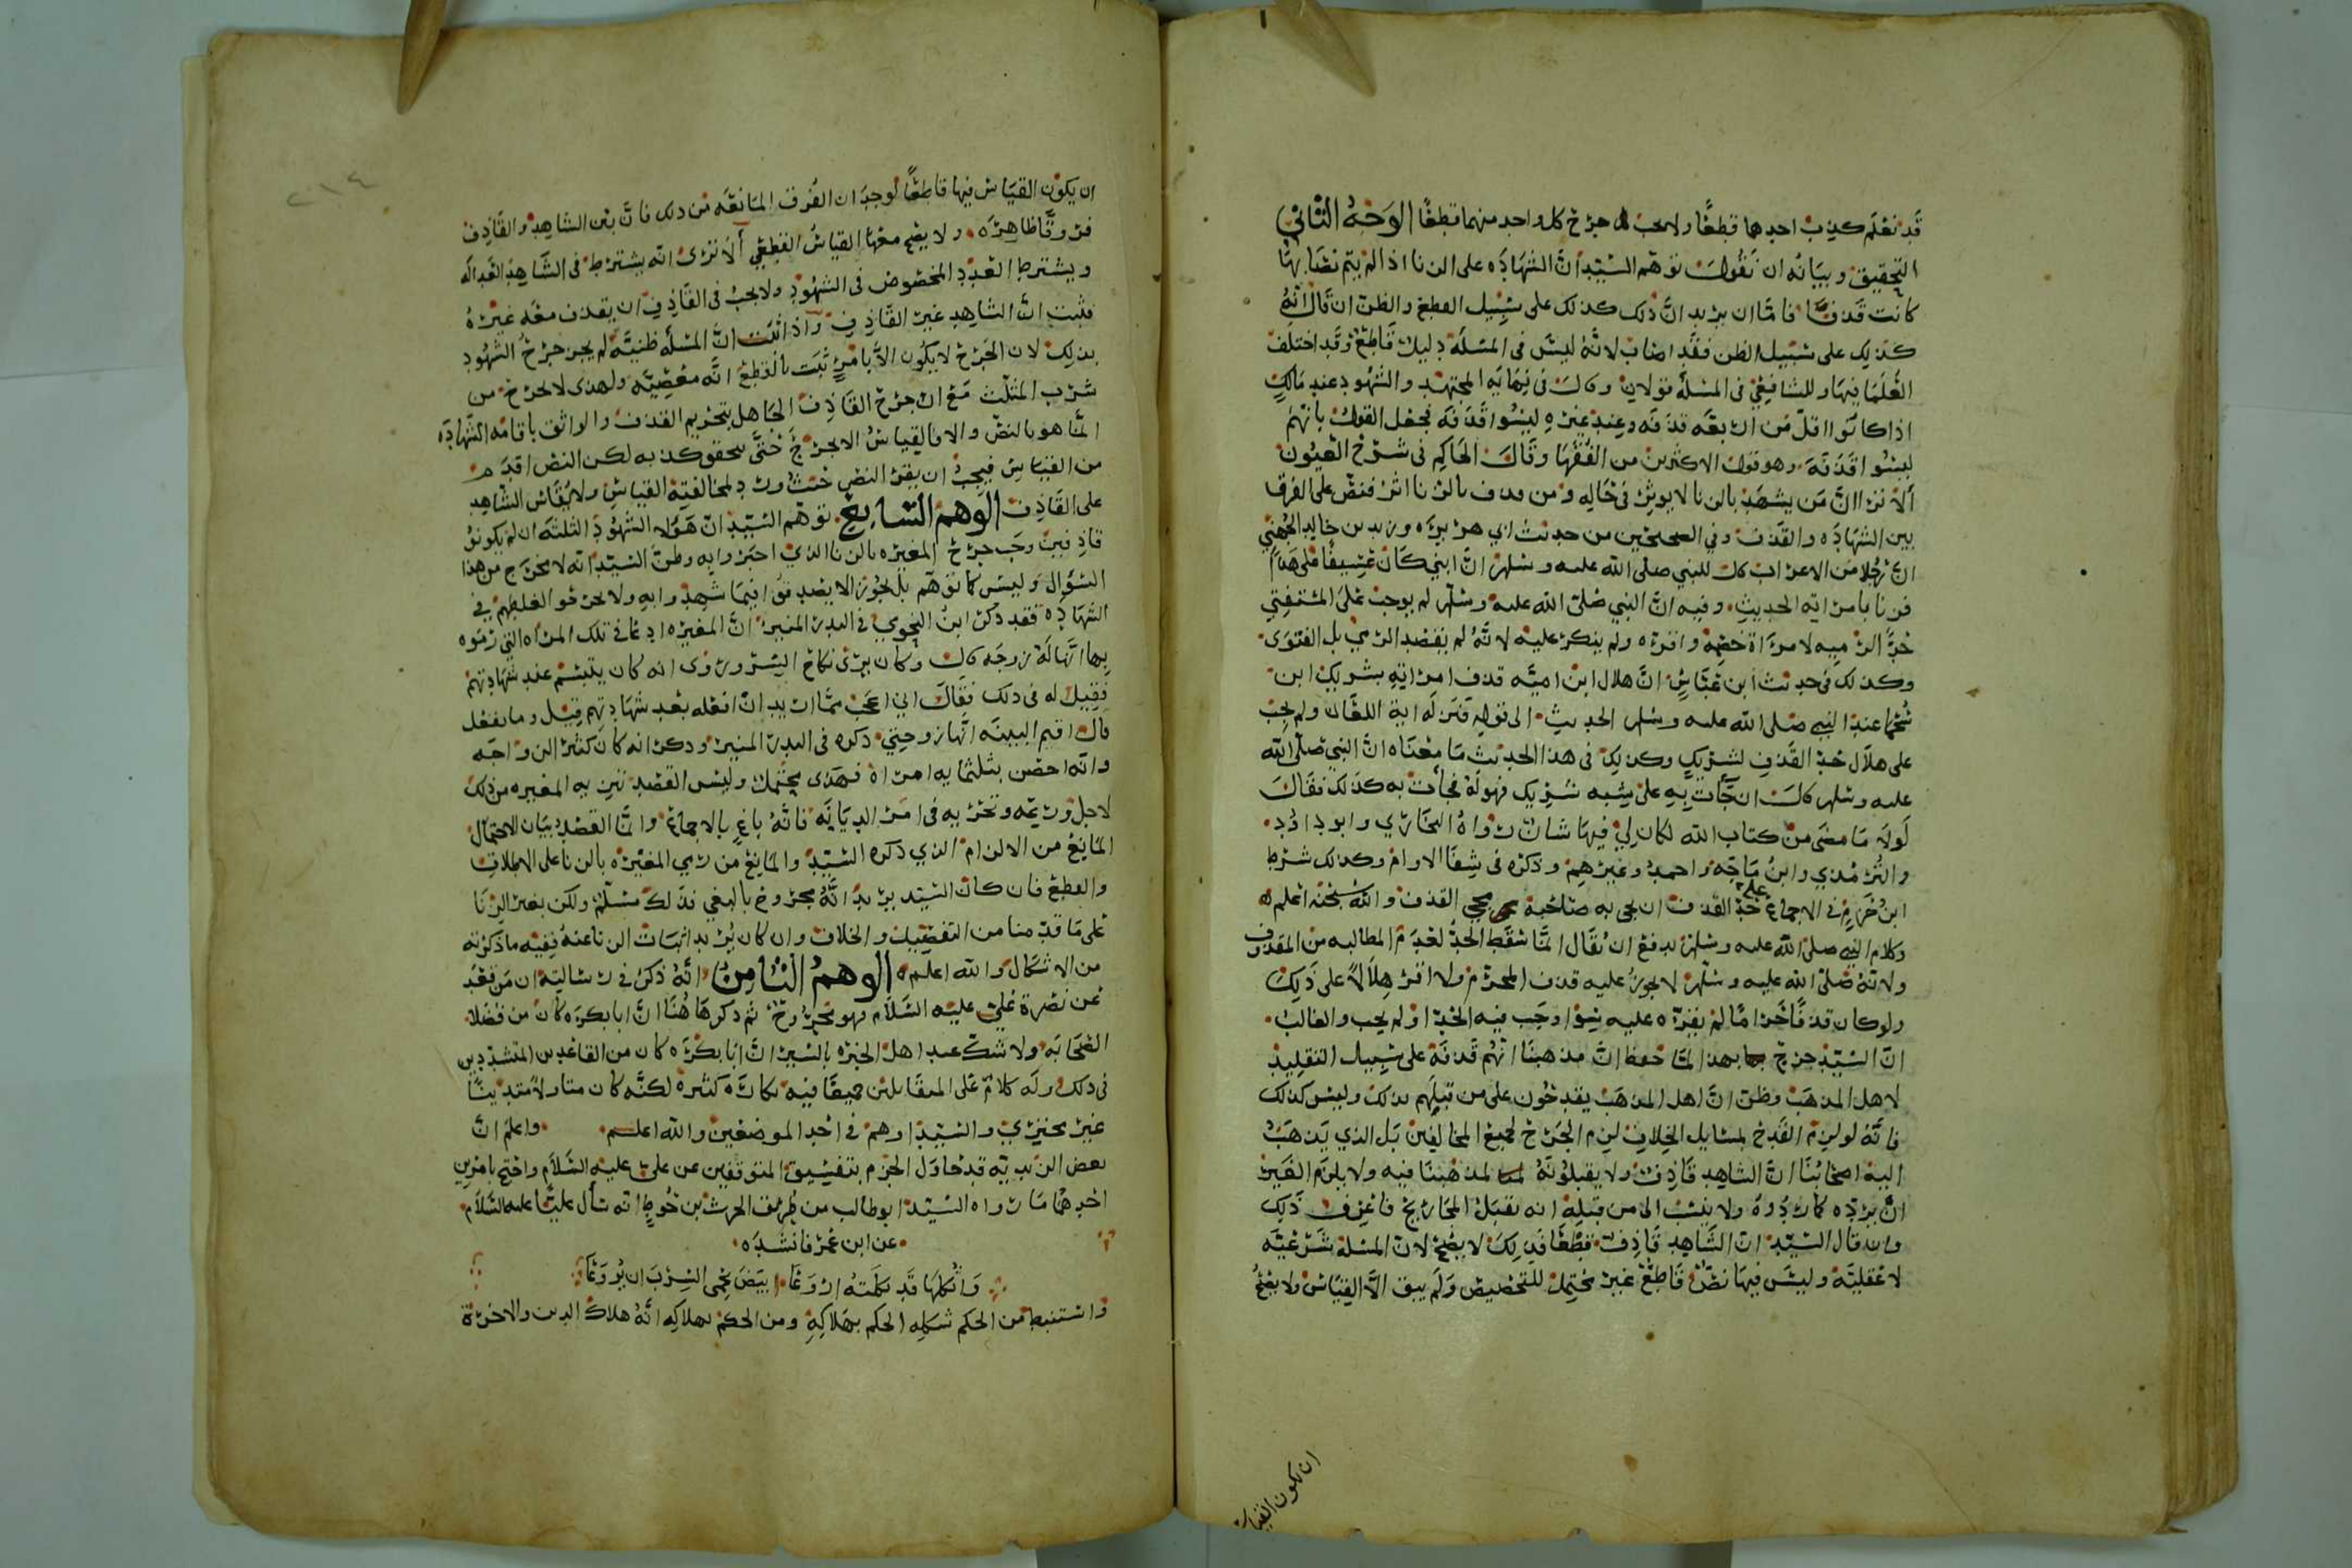 قد نعلم كذب احدهما قطعًا ولا يجب جرح كل واحد منهما قطعًا الوجه الثاني
التحقيق وبيانه ان نقول توهم السيد ان الشهاده على الزنا اذا لم يتم نصابها
كانت قذفا فاما ان يريد ان ذلك كذلك على سبيل القطع والظن ان قال انه
كذلك على سبيل الظن فقد اصاب لانه ليس فى المسئله دليل قاطع وقد اختلف
العلما فيها وللشافعي فى المسئله قولان وقال فى نهايه المجتهد والشهود عند مالك
اذا كانوا اقل من اربعه قذفه وعند غيره ليسوا قذفه فجعل القول بانهم
ليسوا قذفه وهو قول الاكثرين من الفقها وقال الحاكم فى شرح العيون
الا ترا ان من يشهد بالزنا لا يوثر فى حاله ومن قذف بالزنا اثر فنص على الفرق
بين الشهاده والقذف وفي الصحيحين من حديث ابي هريره وزيد بن خالد الجهني
ان رجلا من الاعراب قال للنبي صلى الله عليه وسلم ان ابني كان عسيفًا على هذا
فزنا بامراته الحديث وفيه ان النبي صلى الله عليه وسلم لم يوجب على المستفتي
حد الرميه لامراة خصمه واقره ولم ينكر عليه لانه لم يقصد الرمي بل الفتوى
وكذلك فى حديث ابن عباس ان هلال ابن اميه قذف امراته بشريك ابن
سحما عند النبي صلى الله عليه وسلم الحديث الى قوله فنزله اية اللعان ولم يجب
على هلال حد القذف لشريك وكذلك فى هذا الحديث ما معناه ان النبي صلى الله
عليه وسلم قال ان جأت به على شبه شريك فهو له فجأت به كذلك فقال
لولا ما مضى من كتاب الله لكان لي فيها شان رواه البخاري وابو داود
والترمذي وابن ماجه واحمد وغيرهم وذكره فى شفا الاوام وكذلك شرط
ابن حزم فى الاجماع على حد القذف ان يجى به صاحبه مجي القذف والله سبحنه اعلم
وكلام النبي صلى الله عليه وسلم يدفع ان يقال انما سقط الحد لعدم المطالبه من المقذوف
ولانه صلى الله عليه وسلم لا يجوز عليه قذف المحرم ولا اقر هلالا على ذلك
ولو كان قذفًا حراما لم يقره عليه سوا وجب فيه الحد او لم يجب والغالب
ان السيد جرح بهذا لما حفظ ان مذهبنا انهم قذفة على سبيل التقليد
لاهل المذهب وظن ان اهل المذهب يقدحون على من قبلهم بذلك وليس كذلك
فانه لو لزم القدح بمسايل الخلاف لزم الجرح لجميع المخالفين بل الذي يذهب
اليه اصحابنا ان الشاهد قاذف ولا يقبلونه لمذهبنا فيه ولا يلزم الغير
ان يرده كما ردوه ولا ينسب الى من قبله انه يقبل المجاريح فاعرف ذلك
وان قال السيد ان الشاهد قاذف قطعًا فذلك لا يصح لان المسئلة شرعيه
لا عقليه وليس فيها نص قاطع غير محتمل للتخصيص ولم يبق الا القياس ولا يصح
ان يكون القياس
ان يكون القياس فيها قاطعًا لوجدان الفرق المانعه من ذلك فان بين الشاهد والقاذف
فروقًا ظاهره ولا يصح معها القياس القطعي الا ترى انه يشترط فى الشاهد العداله
ويشترط العدد المخصوص فى الشهود ولا يجب فى القاذف ان يقذف معه غيره
فثبت ان الشاهد غير القاذف واذا ثبت ان المسئله ظنيه لم يجز جرح الشهود
بذلك لان الجرح لا يكون الا بامر ثبت بالقطع انه معصيه ولهذى لا يجرح من
شرب المثلث مع ان جرح القاذف الجاهل بتحريم القذف والواثق باقامه الشهاده
انما هو بالنص والا فالقياس الا يجرح حتى يتحقق كذبه لكن النص اقدم
من القياس فيجب ان يقر النص حيث ورد لمخالفته القياس ولا يقاس الشاهد
على القاذف الوهم السابع توهم السيد ان هؤلا الشهود الثلثه ان لم يكونوا
قاذفين وجب جرح المغيره بالزنا الذي اخبروا به وظن السيد انه لا يخرج من هذا
السؤال وليس كما توهم بل يجوز الا يصدقوا فيما شهدوا به ولا يجرحوا لغلطهم في
الشهاده فقد ذكر ابن النحوي فى البدر المنير ان المغيره ادعا فى تلك المراه التي رموه
بها انها له زوجه قال وكان يرى نكاح السر وروى انه كان يتبسم عند شهادتهم
فقيل له فى ذلك فقال اني اعجب مما اريد ان افعله بعد شهادتهم قيل وما تفعل
قال اقيم البينه انها زوجتي ذكره فى البدر المنير وذكر انه كان كثير الزواجه
وانه احصن بثلثمايه امراه فهذى محتمل وليس القصد تنزيه المغيره من ذلك
لاجل ورعه وتحريه فى امر الديانه فانه باغ بالاجماع وانما القصد بيان الاحتمال
المانع من الالزام الذي ذكره السيد والمانع من رمي المغيره بالزنا على الاطلاق
والقطع فان كان السيد يريد انه مجروح بالبغي فذلك مسلم ولكن بغير الزنا
على ما قدمنا من التفصيل والخلاف وان كان يريد اثبات الزنا عنه ففيه ما ذكرته
من الاشكال والله اعلم الوهم الثامن انه ذكر فى رسالته ان من قعد
عن نصرة علي عليه السلام فهو مجروح ثم ذكرها هنا ان ابا بكره كان من فضلا
الصحابه ولا شك عند اهل الخبره بالسير ان ابا بكره كان من القاعدين المتشددين
فى ذلك وله كلام على المقاتلين جميعًا فيه نكاره كثيرة لكنه كان متاولا متدينًا
غير مجتري والسيد اوهم فى احد الموضعين والله اعلم واعلم ان
بعض الزيديه قد حاول الجزم بتفسيق المتوقفين عن علي عليه السلام واحتج بامرين
احدهما ما رواه السيد ابو طالب من طريق الحرث بن حوط انه سأل عليًا عليه السلام
عن ابن عمر فانشده
واثكلها قد ثكلته اروعا ابيض يحمى السرب ان يروعا
واستنبط من الحكم ثكله الحكم بهلاكه ومن الحكم بهلاكه انه هلاك الدين والاخرة